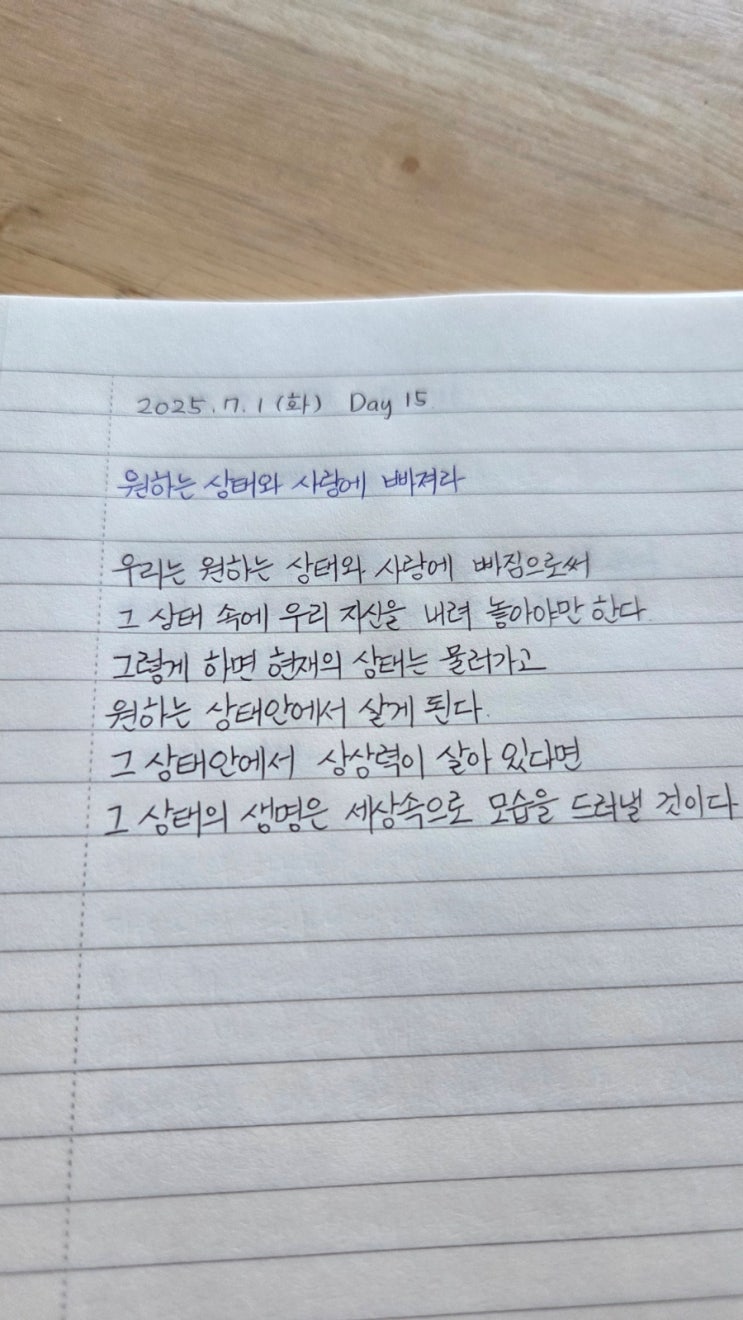 2025.7.1(화) Day 15
원하는 상태와 사랑에 빠져라
우리는 원하는 상태와 사랑에 빠짐으로써
그 상태 속에 우리 자신을 내려 놓아야만 한다.
그렇게 하면 현재의 상태는 물러가고
원하는 상태안에서 살게 된다.
그 상태안에서 상상력이 살아 있다면
그 상태의 생명은 세상속으로 모습을 드러낼 것이다